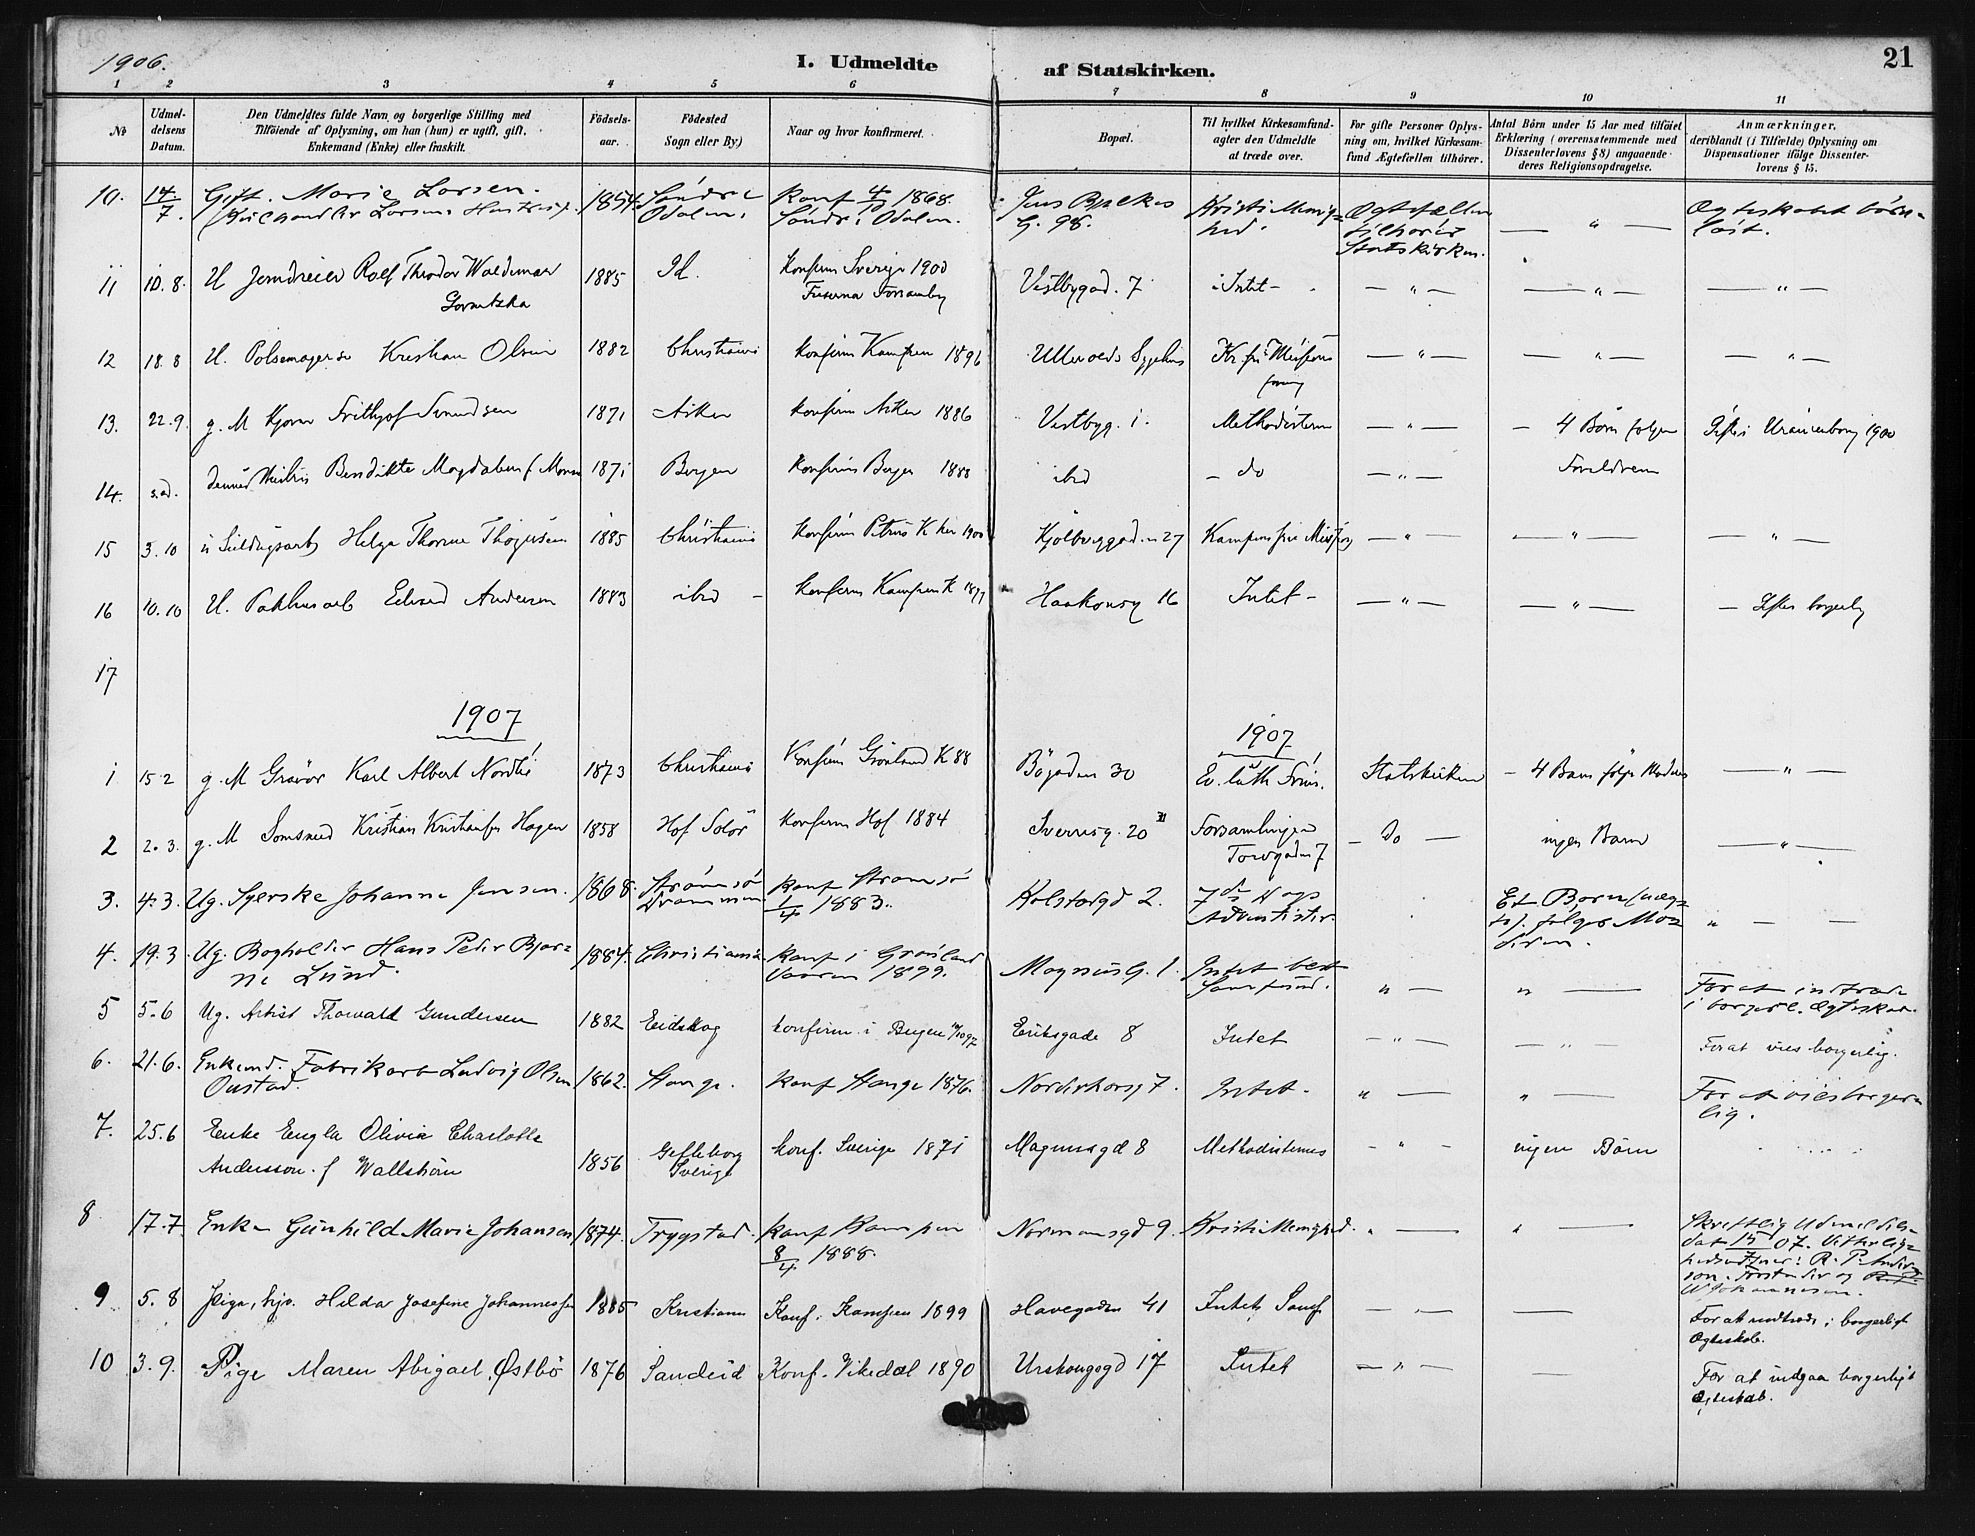 1906.
I. Udmeldte af Statskirken.
21
1 2 3 4 5 6 7 8 9 10 11
No
Udmel-
delsens
Datum.
Den Udmeldtes fulde Navn og borgerlige Stilling med
Tilföiende af Oplysning, om han (hun) er ugift, gift,
Enkemand (Enke) eller fraskilt.
Födsels-
aar.
Födested
Sogn eller By.)
Naar og hvor konfirmeret.
Bopæl.
Til hvilket Kirkesamfund
agter den Udmeldte
at træde over.
For gifte Personer Oplys-
ning om, hvilket Kirkesam-
fund Ægtefællen tilhörer.
Antal Börn under 15 Aar med tilföiet
Erklæring (overensstemmende med
Dissenterlovens § 8) angaaende
deres Religionsopdragelse.
Anmærkninger,
deriblandt (i Tilfælde) Oplysning om
Dispensationer ifölge Dissenter-
lovens § 15.
10. 14/7. Gift. Marie Larsen. 1854. Söndre Konf 4/10 1868. Jens Bjelkes Kristi Menig= Ægtefællen — " — Ægteskabet börne=
Larsens Hustru. Odalen. Söndre Odalen. G. 98. hed. tilhörer löst.
Statskirken.
11 10.8. U Jerndreier Rolf Theodor Waldemar 1885 Id. Konfirm Sverige 1900 Vestbygad. 7 Intet — " — — " — — " —
12 18.8 U. Pölsemager Kristian Olsen 1882 Christiania konfirm Kampen 1896 Ullevolds Sygehus Kr fri Missions — " — — " — — " —
13. 22.9. g. M Frithjof 1871 Asker konfirm Asker 1886 Vestbyg. 1. Methodisterne — " — — 4 Börn følger Uranienborg 1900
14. s.d. Bendikte Magdalene f 1871 Bergen konfirm Bergen 1888 ibid — do — " — Foreldrene
15 3.10 Helga 1885 Christiania konfirm Petrus K 1900 Kjölberggaden 27 Kampens frie — " — — " — — " —
16 10.10 U. Edvard Andersen 1883 ibid — konfirm Kampen K Haakonsg 16 Intet — — " — — " — — Gifter borgerlig
17
1907 1907
1 15.2 g. M Karl Albert 1873 Christiania Konfirm Grönland K 88 Bögaden 30 Ev. luth Frim. Statskirken — 4 Barn følger Moderen — " —
2 2.3. g. M Kristian Hagen 1858 Hof Solör konfirm Hof 1884 Sverresg. 20 Forsamlingen — Do — ingen Barn — " —
Torvgaden 7
3. 4.3. Ug. Syerske Johanne Jensen. 1868. Strömsö Konf Strömsö Holstsgd 2. 7de Dags Et Barn " — —
Drammen 1/4 1883. Adventister følger Mo=
deren.
4. 19.3. Ug. Bogholder Hans Peder Bjar= 1884. Christiania. Konf i Grönland Magnus G. 1. Intet best " — " — For at indtræde
ne Lund. Vaaren 1899. Samfund. i borgerl. Ægteskab.
5 5.6 Ug. Artist Thorvald Gundersen 1882 Eidskog konfirm. i Bergen Eriksgade 8 Intet — " — — " — For at vies borgerlig.
6. 21.6. Enkemd. Fabrikarb Ludvig Olsen 1862. Stange. Konf Stange 1876. 7. Intet. " — " — For at vies borger=
lig.
7. 25.6 Enke Engla Olivia Charlotte
Andersson. f Wallström 1856 Gefleborg konf. Sverige 1871 Magnusgd 8 Methodisternes — " — ingen Börn
Sverige
8 17.7. Enke Gunhild Marie Johansen 1874. Trygstad. Konf Kampen Normansgd 9. Kristi Menighed. " — " — Skriftlig Udmeldelse
8/4 1888. dat 15/7 07.
R. P. Ander=
son. Forstander og
W Johannesen.
9 5.8 Pige, Hilda Josefine Johannessen 1885 Kristiania Konf. Kampen 1899 Havegaden 41 Intet Samf — " — — For at indtræde i borgerligt
Ægteskab.
10 3.9. Pige Maren Abigael Østbö 1876 Sandeid Konf. Vikedal 1890 Urskougsgd 17 Intet — " — — For at indgaa borgerligt
Ægteskab.